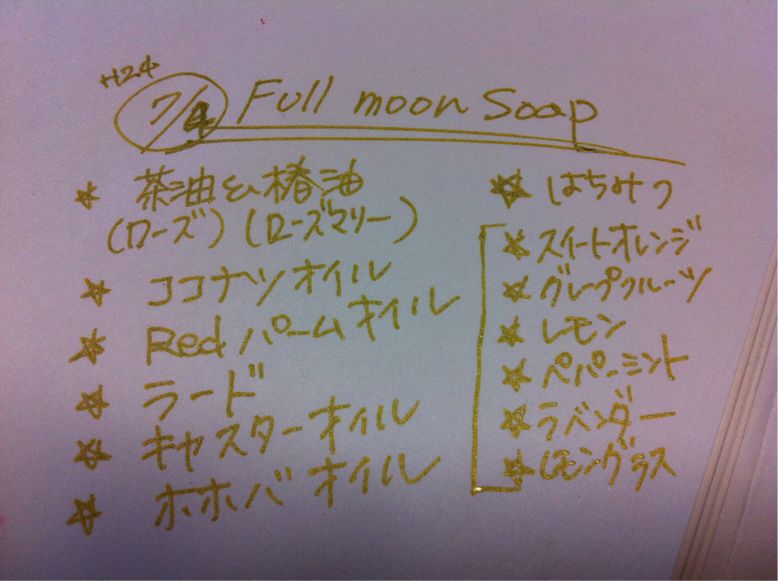 H24
7/4 Full moon Soap
☆ 茶油&椿油
(ローズ)(ローズマリー)
☆ ココナツオイル
☆ Redパームオイル
☆ ラード
☆ キャスターオイル
☆ ホホバオイル
☆ はちみつ
☆ スイートオレンジ
☆ グレープフルーツ
☆ レモン
☆ ペパーミント
☆ ラベンダー
☆ レモングラス